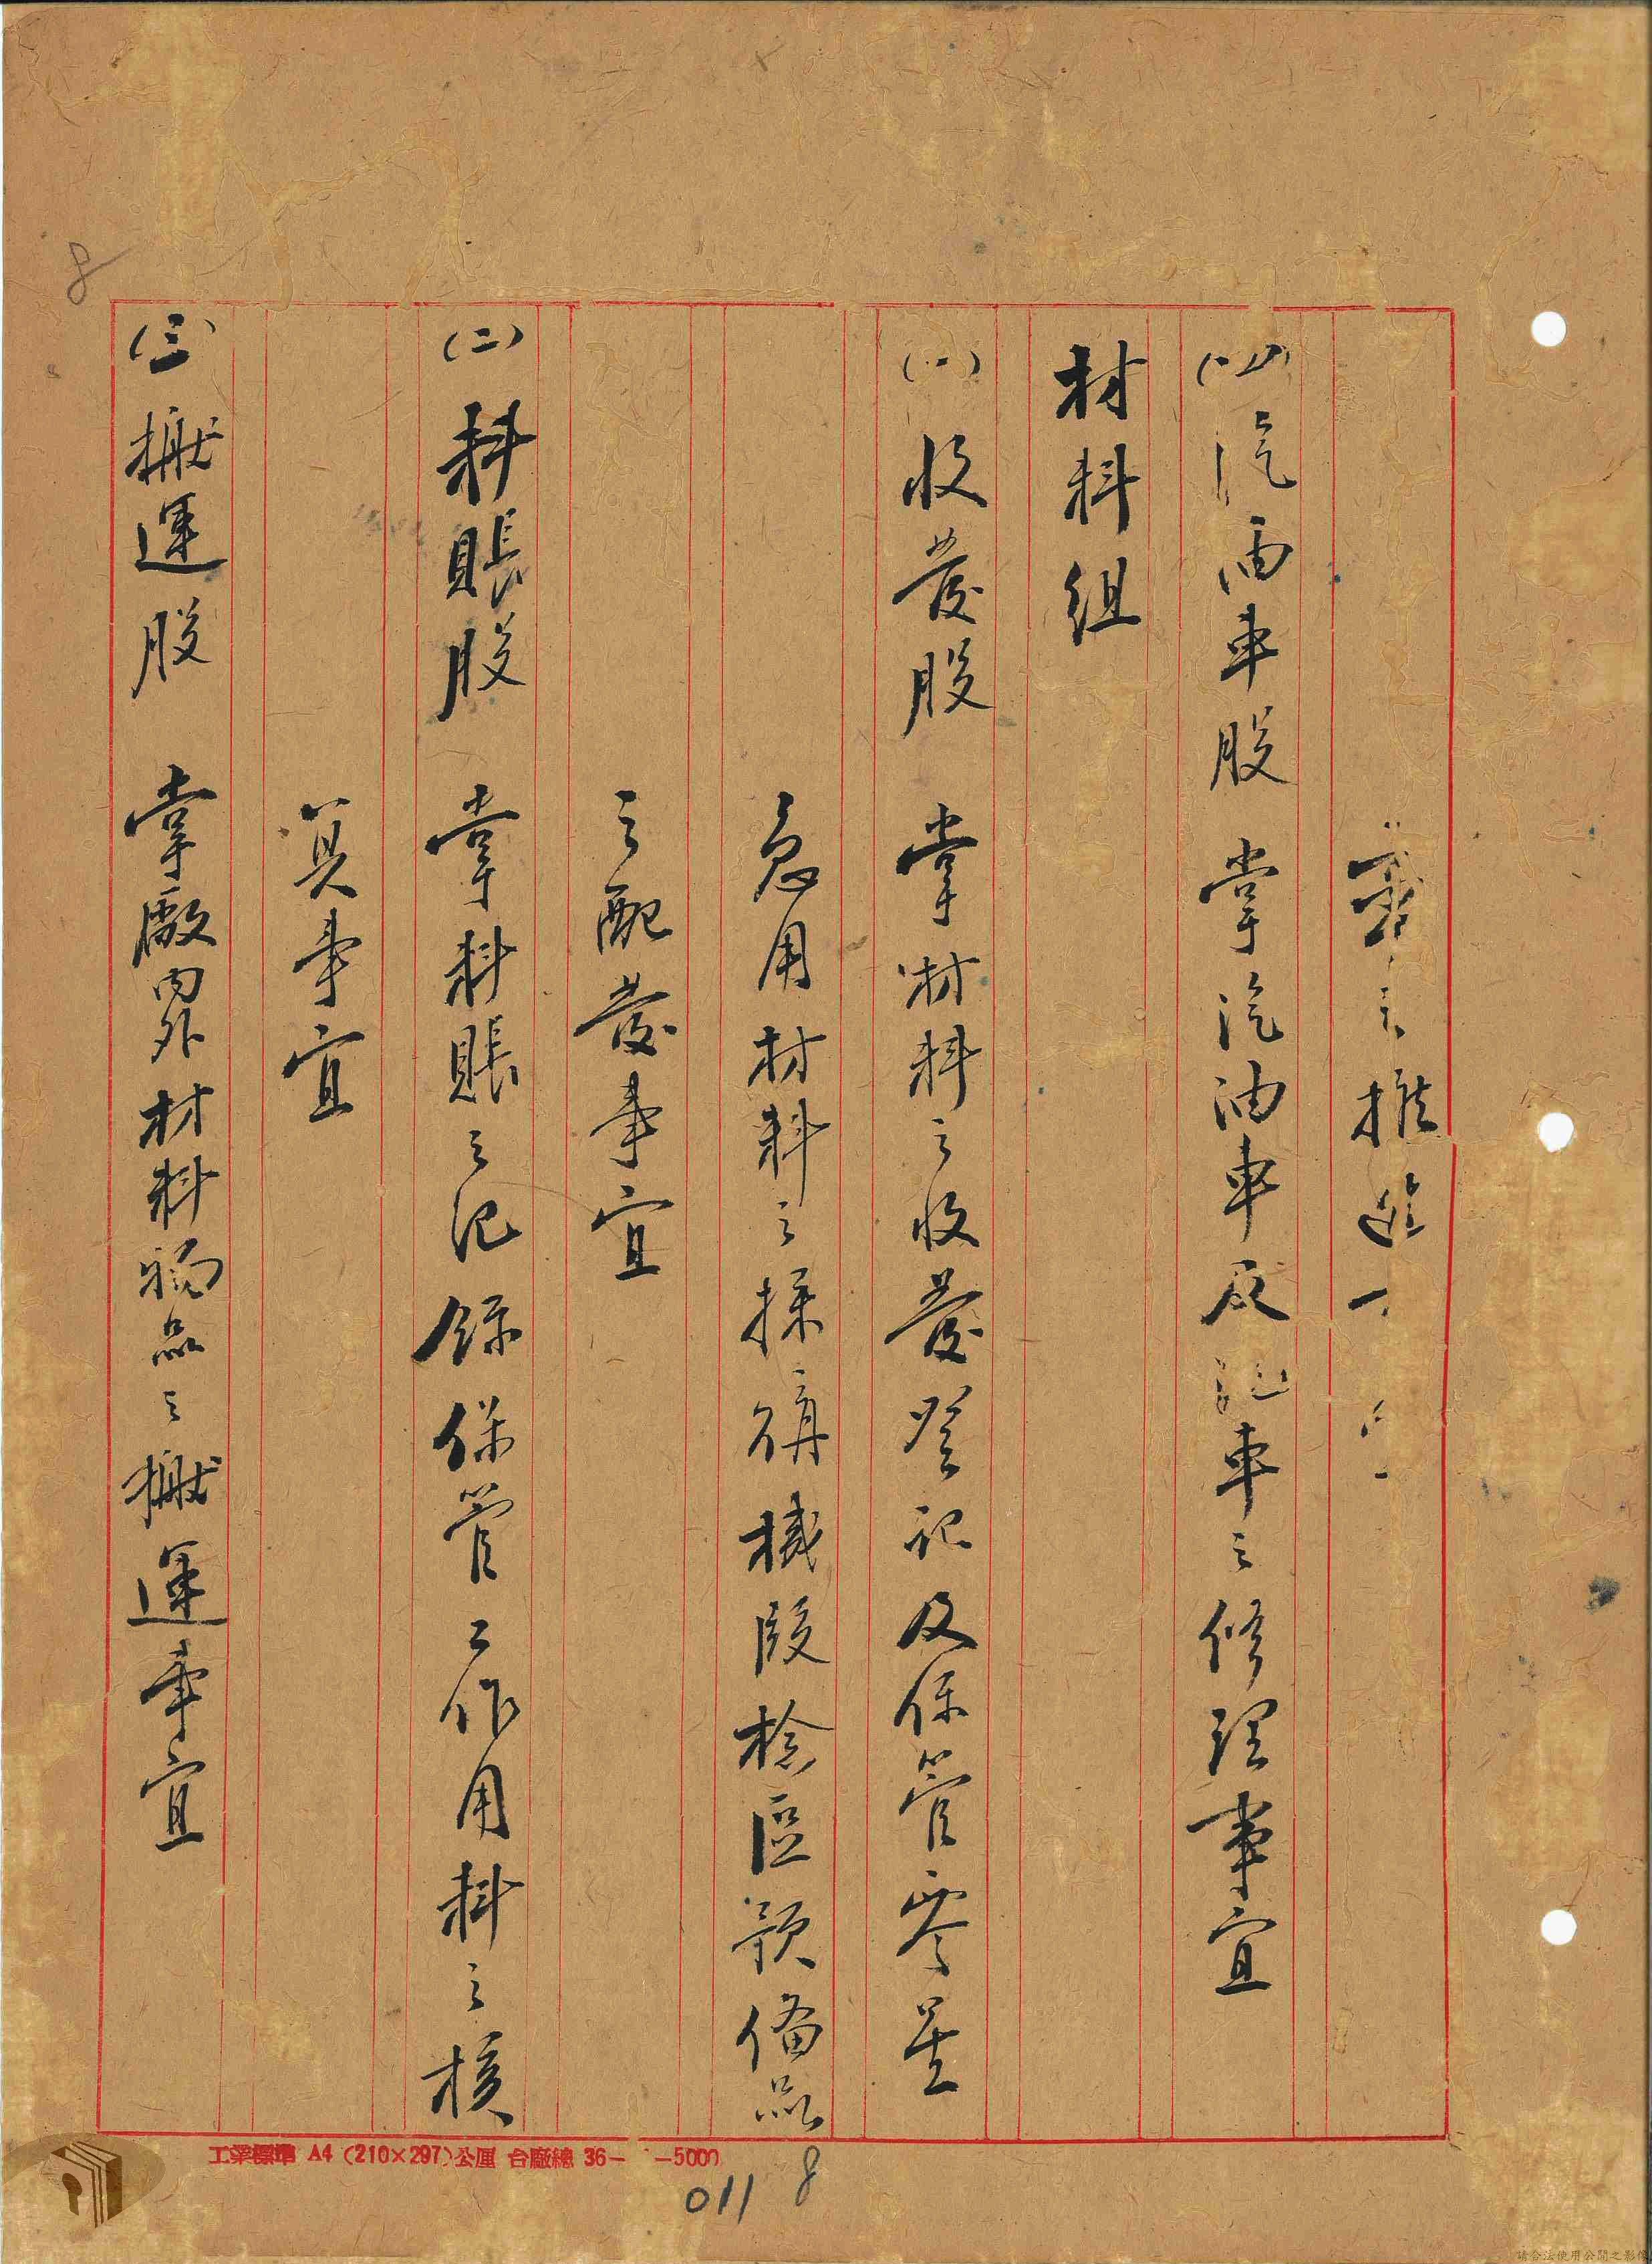 之推進
汽油車股 掌汽油車及汽車之修理事宜
材料組
(一) 收發股 掌材料之收發登記及保管零星
急用材料之採購機段檢區預備品
之配發事宜
(二) 料賬股 掌料賬之記錄保管工作用料之核
算事宜
(三) 搬運股 掌廠內外材料物品之搬運事宜
工業標準 A4 (210×297)公厘 台廠總 36- -5000
011
8
8
請合法使用公開之影像